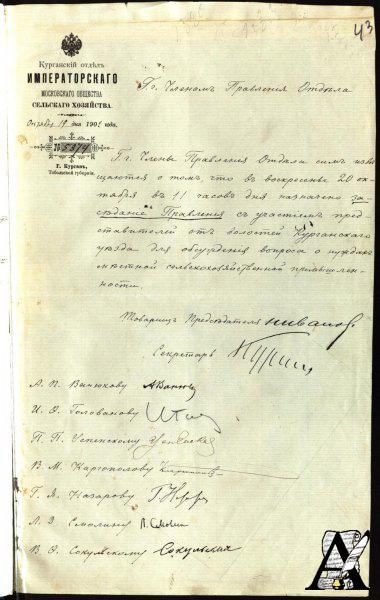 43
Курганскiй отдѣлъ
ИМПЕРАТОРСКАГО
МОСКОВСКАГО ОБЩЕСТВА
СЕЛЬСКАГО ХОЗЯЙСТВА.
Октября 19 дня 1902 года.
№ 5374
Г. Курганъ,
Тобольской губернiи.
Г.г. Членамъ Правленiя Отдѣла
Г.г. Члены Правленiя Отдѣла симъ извѣ
щаются о томъ что въ воскресенье 20 ок-
тября въ 11 часовъ дня назначено за-
сѣданiе Правленiя съ участiемъ пред-
ставителей отъ волостей Курганскаго
уѣзда для обсужденiя вопроса о нуждахъ
мѣстной сельскохозяйственной промышлен-
ности.
Товарищъ Предсѣдателя
Секретарь
А. П. Ванюкову
И. Ѳ. Голованову
П. П. Успенскому Успенскiй
В. М. Каргополову
Г. Я. Назарову
Л. Д. Смолину Л. Смолин
В. Ѳ. Сокульскому Сокульскiй